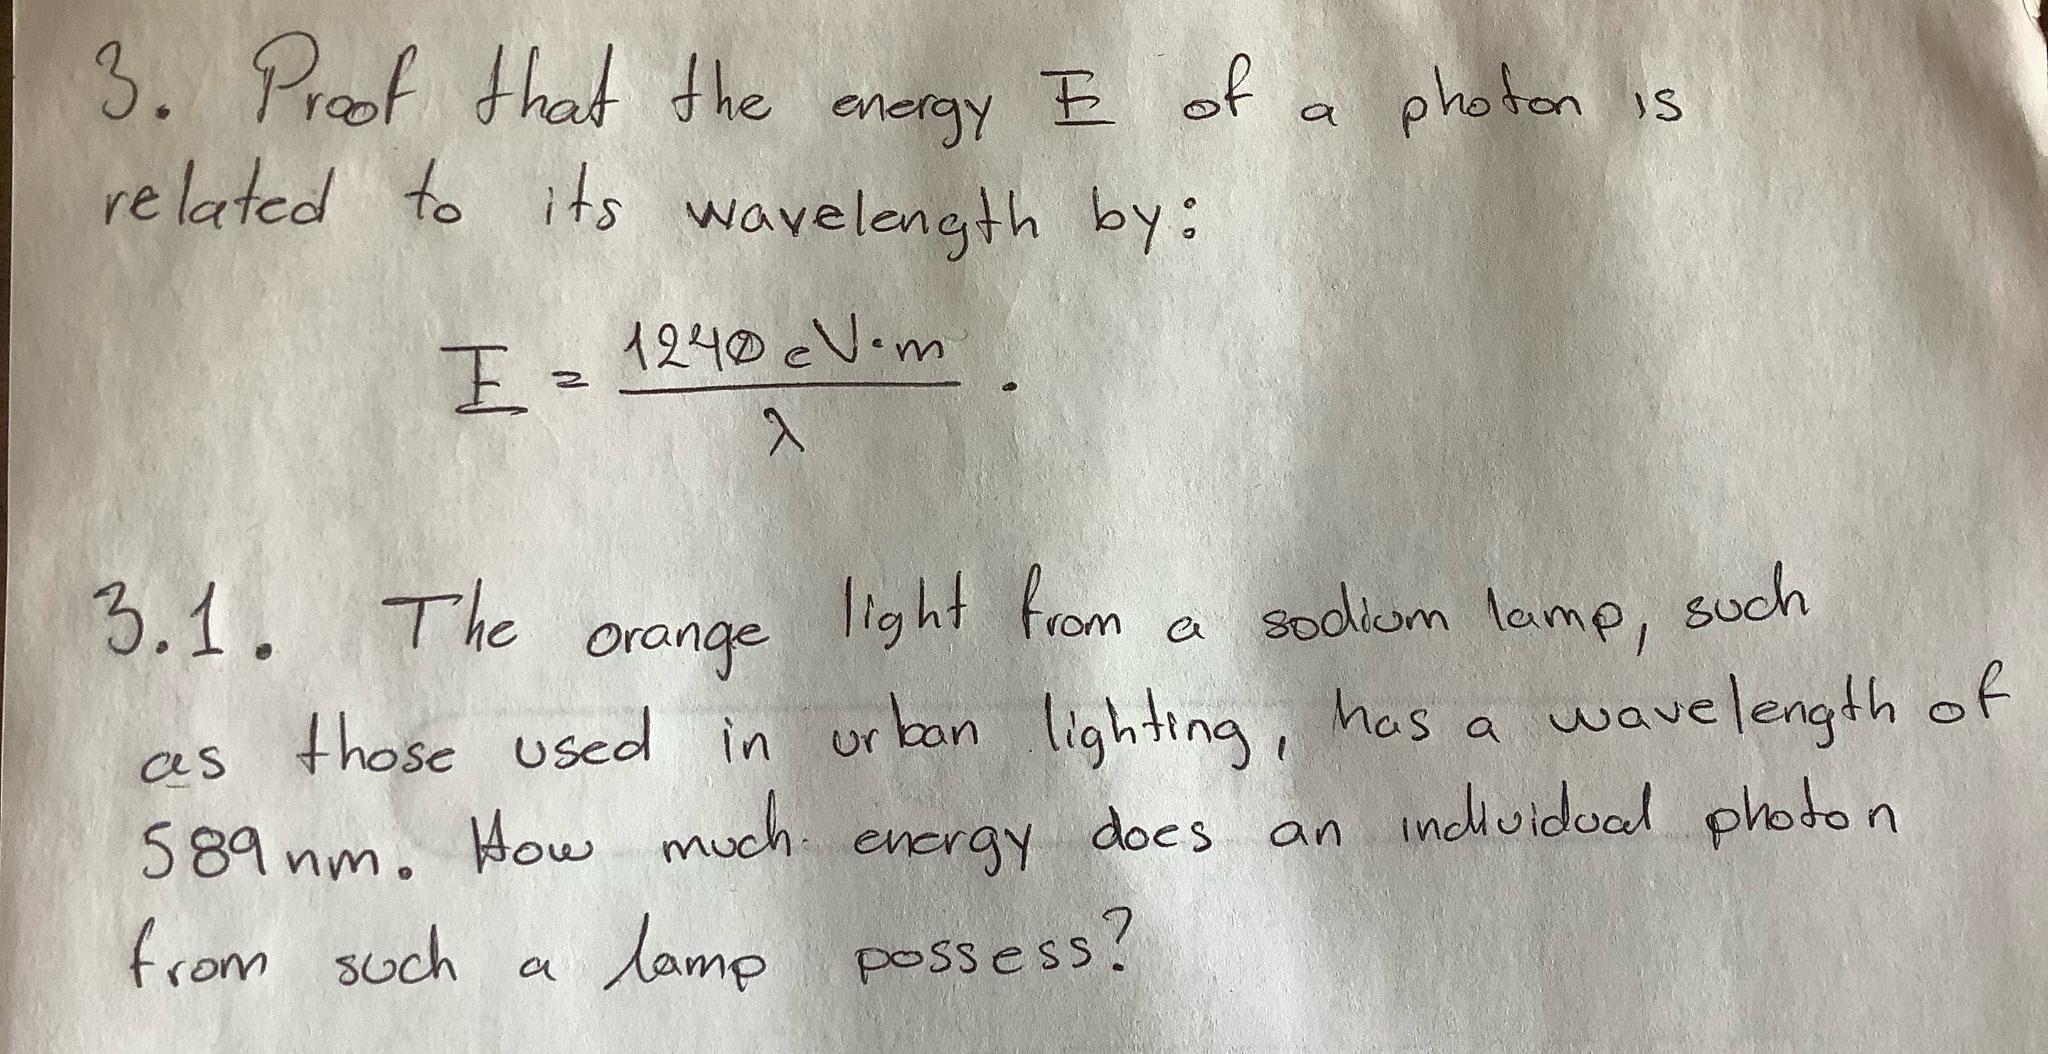 3. Proof that the energy E of a photon is
related to its wavelength by:
E = 1240 eV·m / λ .
3.1. The orange light from a sodium lamp, such
as those used in urban lighting, has a wavelength of
589 nm. How much energy does an individual photon
from such a lamp possess?